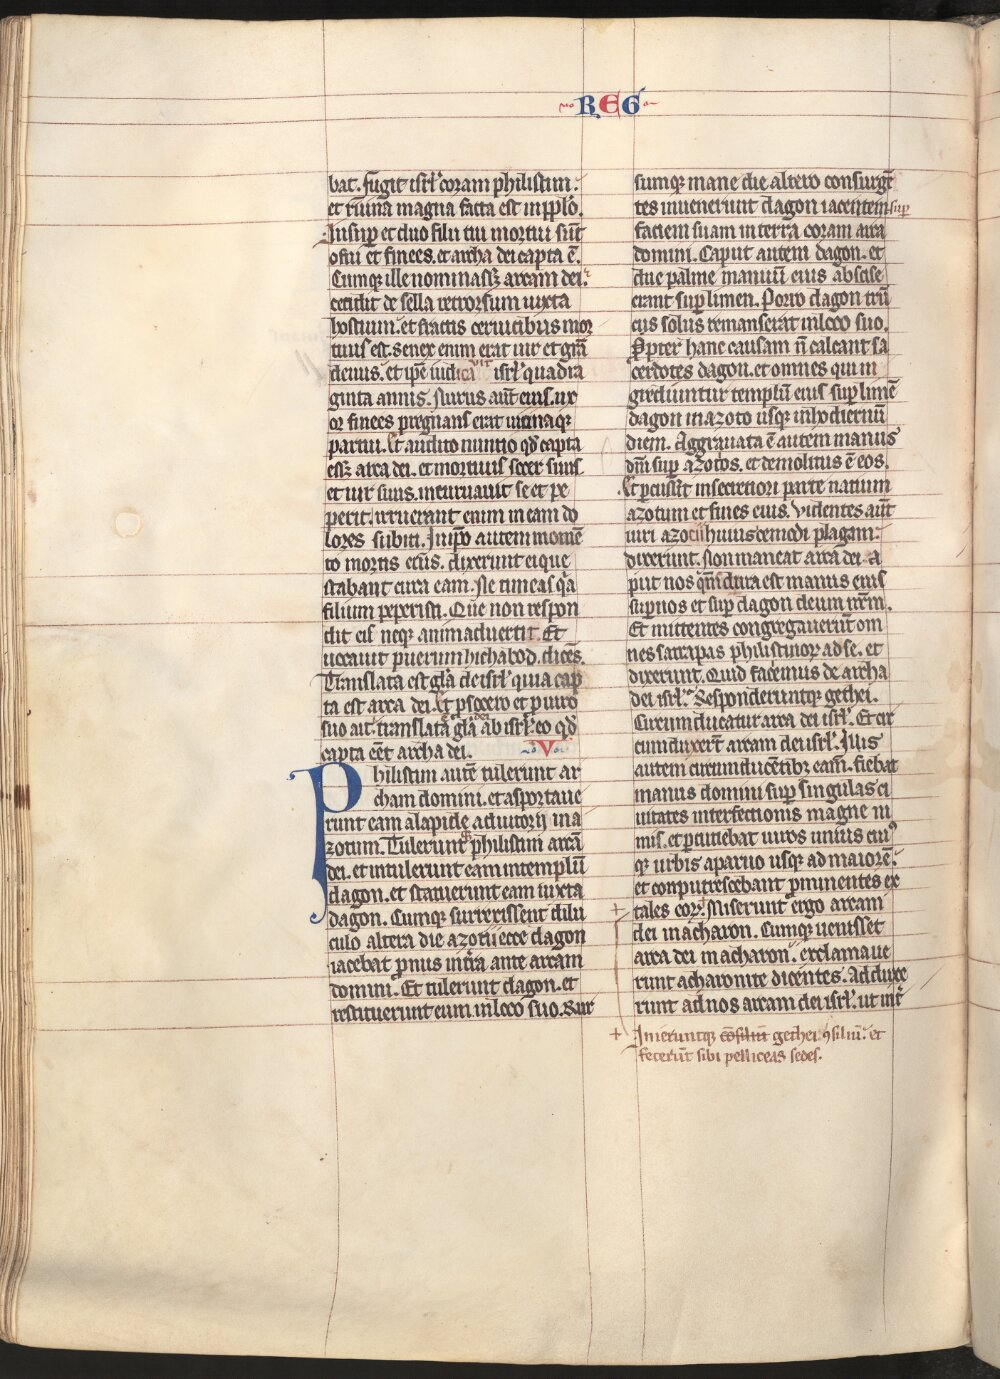 REG
bat. fugit isrł coram philistim.
et ruina magna facta est in pplo.
Insup et duo filii tui mortui sūt
ofni et finees. et archa dei capta ē.
Cumq; ille nominassꝫ arcam dei.
cecidit de sella retrorsum iuxta
hostium. et fractis cervicibus mor
tuus est. Senex enim erat uir et grā
deuus. et ipse iudicauit isrł quadra
ginta annis. Nurus aūt eius. ux
or finees pregnans erat uicinaq;
partui. Et audito nuntio qđ capta
essꝫ arca dei. et mortuus socer suus
et uir suus. incuruauit se et pe
perit. irruerant enim in eam do
lores subiti. In ipo autem momē
to mortis eius. dixerunt ei que
stabant circa eam. Ne timeas qa
filium peperisti. Que non respon
dit eis neq; animaduertit. Et
uocauit puerum hichabod. dicēs.
Translata est gła de isrł. quia cap
ta est arca dei. Et p socero et p uiro
suo ait. translata gła dei ab isrł. eo qđ
capta eēt archa dei. V
Philistim autē tulerunt ar
cham domini. et asportaue
runt eam a lapide adiutorij in a
zotum. Tulerunt philistim arcā
dei. et intulerunt eam in templū
dagon. et statuerunt eam iuxta
dagon. Cumq; surrexissent dilu
culo altera die azotii ecce dagon
iacebat pnus in tra ante arcam
domini. Et tulerunt dagon. et
restituerunt eum in loco suo. Rur
sumq; mane die altero consurgē
tes inuenerunt dagon iacentem sup
faciem suam in terra coram arca
domini. Caput autem dagon. et
due palme manuū eius abscise
erant sup limen. Porro dagon trū
cus solus remanserat in loco suo.
Ppter hanc causam n̄ calcant sa
cerdotes dagon. et omnes qui in
grediuntur templū eius sup limē
dagon in azoto usq; in hodiernū
diem. Aggrauata ē autem manus
dn̄i sup azotos. et demolitus ē eos.
Et pcussit in secretiori parte natium
azotum et fines eius. Videntes aūt
uiri azotii huiuscemodi plagam.
dixerunt. Non maneat arca dei. a
put nos qm̄ dura est manus eius
sup nos et sup dagon deum nr̄m.
Et mittentes congregauerūt om
nes satrapas philistinor ad se. et
dixerunt. Quid faciemus de archa
dei isrł. Responderuntq; gethei.
Circumducatur arca dei isrł. Et cir
cumduxerūt arcam dei isrł. Illis
autem circumducētibꝫ eam. fiebat
manus domini sup singulas ci
uitates interfectionis magne ni
mis. et pcutiebat uiros unius cui9
q; urbis a paruo usq; ad maiorē.
et conputrescebant prominentes ex
tales eorꝫ. Miserunt ergo arcam
dei in acharon. Cumq; uenisset
arca dei in acharon. exclamaue
runt acharonite dicentes. Adduxe
runt ad nos arcam dei isrł. ut int
+ Inieruntq; cōsiliū gethei ꝯsiliū. et
fecerūt sibi pelliceas sedes.